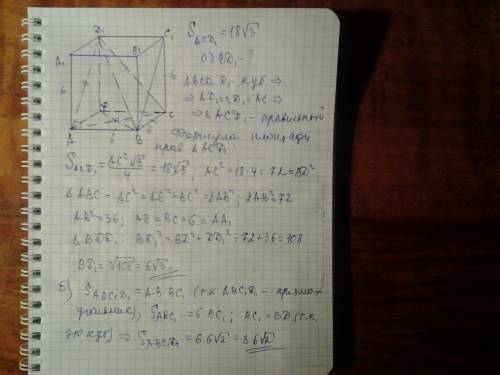 D₁ C₁
A₁ B₁
6 6
D C
A 6 B 6
S_ACD₁ = 18√3
а) BD₁ - ?
ABCD D₁ - куб ⇒
⇒ AD₁ = CD₁ = AC ⇒
⇒ △ACD₁ - правильный
Формула площади
прав △ACD₁:
S_ACD₁ = AC²√3/4 = 18√3; AC² = 18·4 = 72 = BD²
△ABC - AC² = AB² + BC² = 2AB²; 2AB² = 72
AB² = 36; AB = BC = 6 = AA₁
△BDD₁: BD₁² = BD² + DD₁² = 72 + 36 = 108
BD₁ = √108 = 6√3.
б) S_ABC₁D₁ = AB·BC₁ (т.к. ABC₁D₁ - прямо-
угольник), S_ABC₁ = 6·BC₁; BC₁ = BD (т.к
это куб) ⇒ S_ABC₁D₁ = 6·6√2 = 36√2